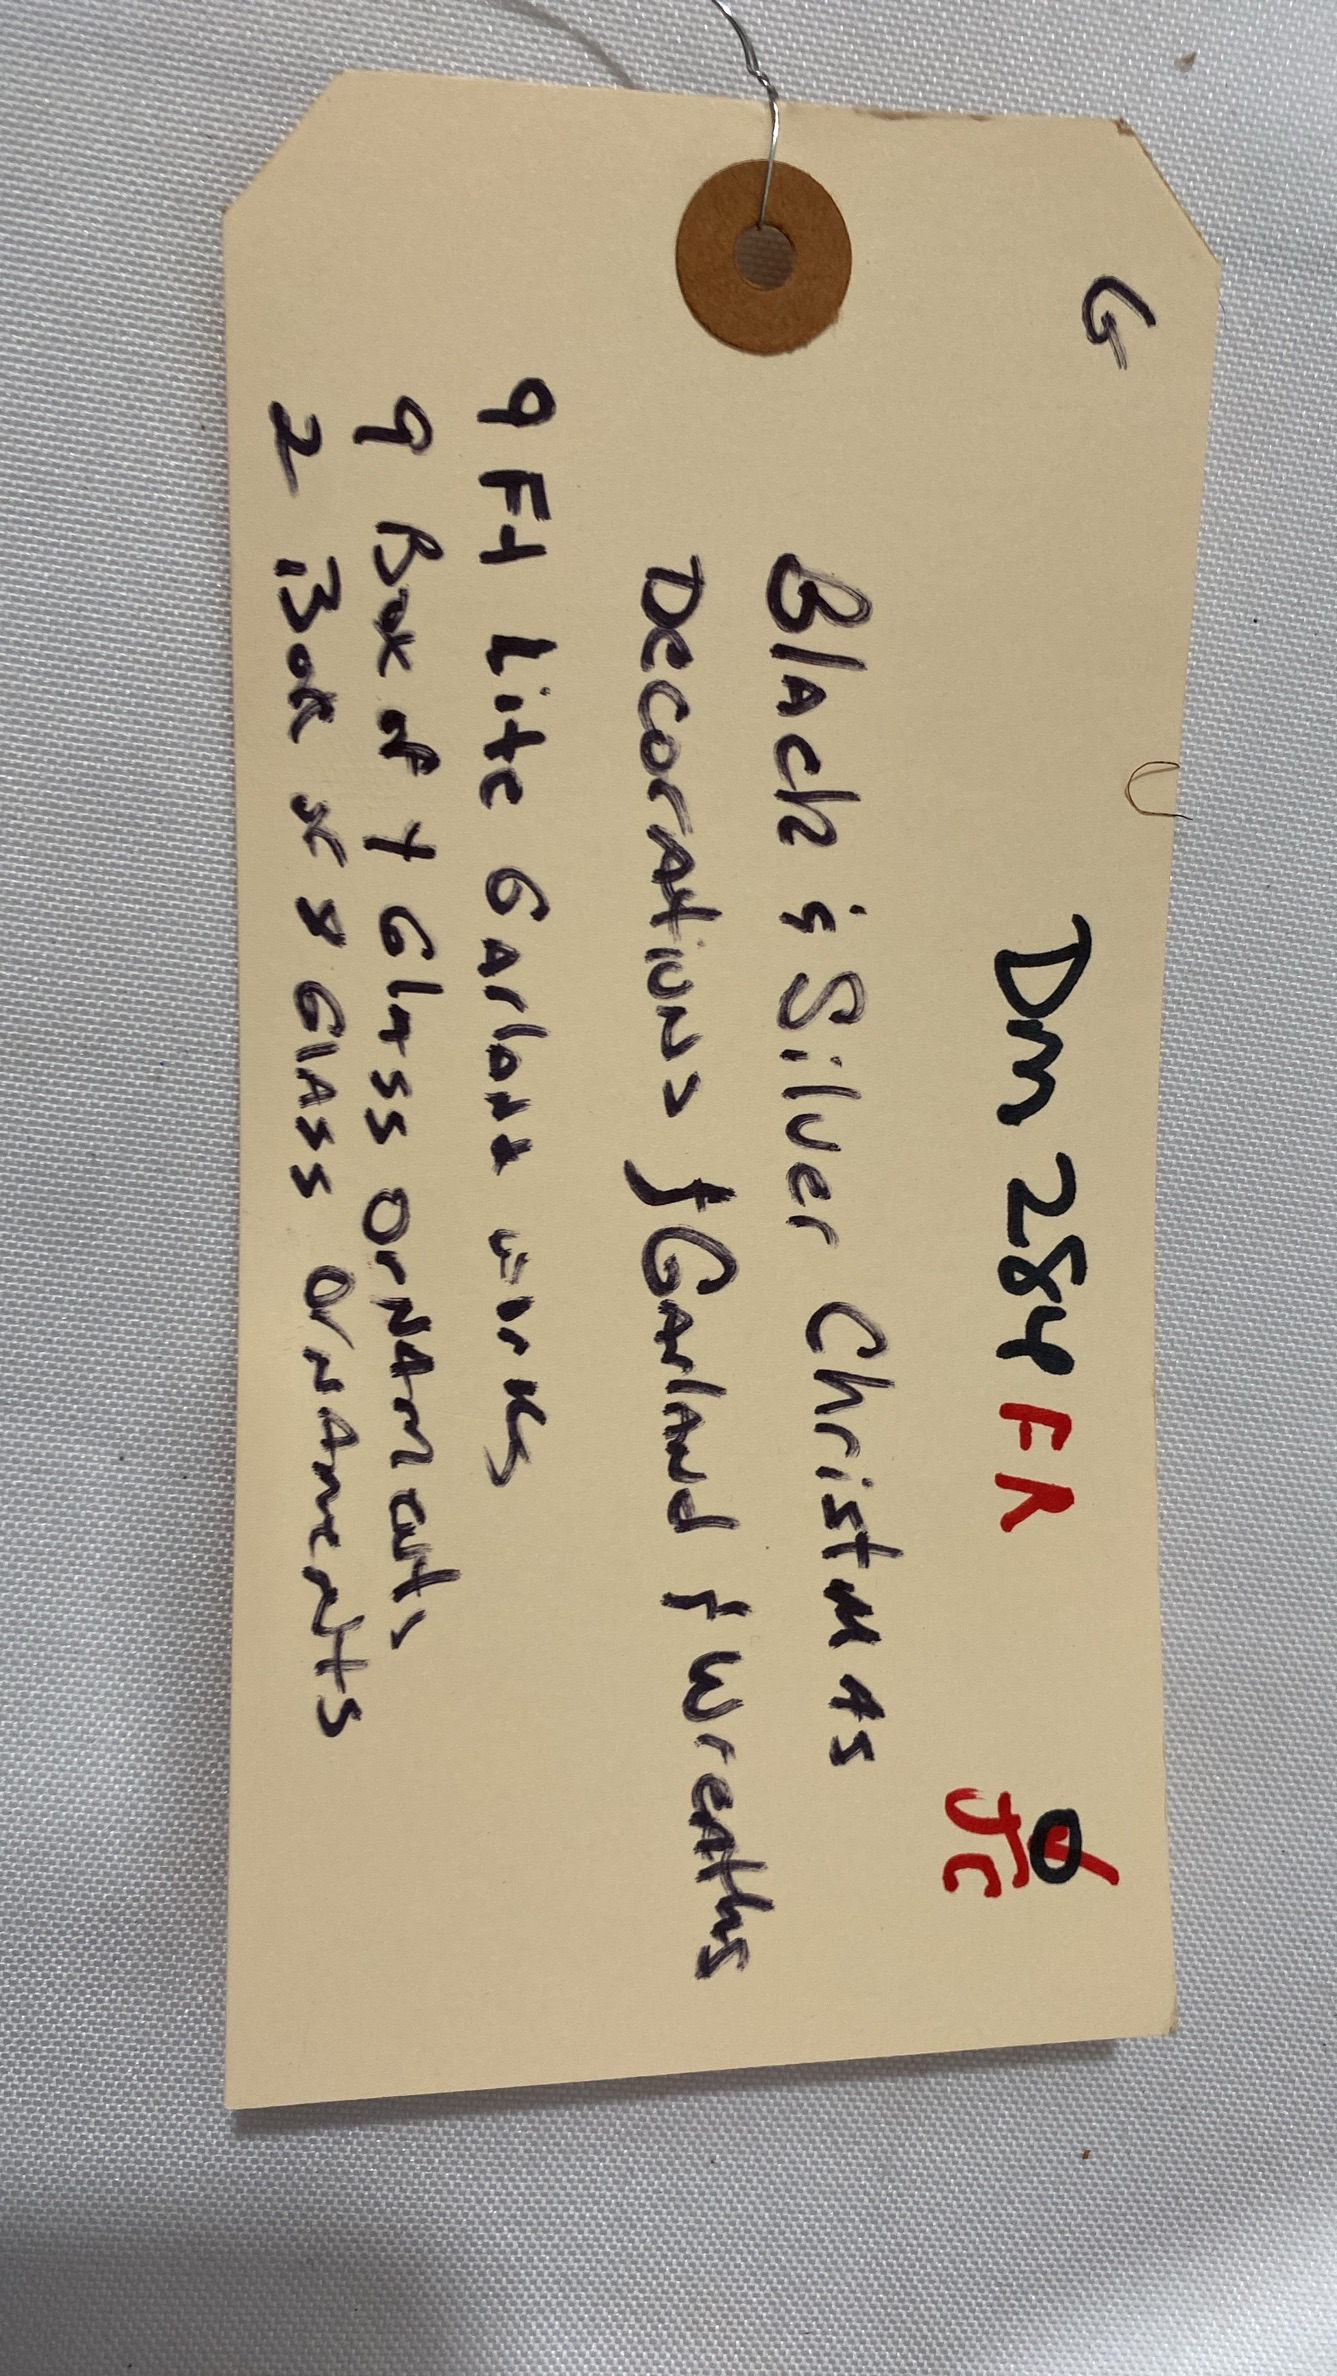 G Dm 284 FA
JC
Black & Silver Christmas
Decorations & Garland & Wreaths
9 Ft Lite Garland works
9 Box of 4 Glass Ornaments
2 Box of 8 Glass Ornaments